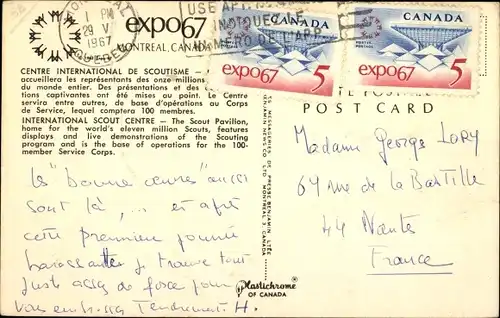 MONTREAL
1 PM
29 V
1967
QUEBEC
expo67
MONTREAL, CANADA
USE APT. NO.
INDIQUEZ LE
NUMÉRO DE L'APP.
CANADA
POSTES POSTAGE
expo67 5
CANADA
POSTES POSTAGE
expo67 5
CENTRE INTERNATIONAL DE SCOUTISME —
accueillera les représentants des onze millions
du monde entier. Des présentations et des
tions captivantes ont été mises au point. Le Centre
servira entre autres, de base d'opérations au Corps
de Service, lequel comptera 100 membres.
INTERNATIONAL SCOUT CENTRE — The Scout Pavilion,
home for the world's eleven million Scouts, features
displays and live demonstrations of the Scouting
program and is the base of operations for the 100-
member Service Corps.
POSTALE
POST CARD
LES MESSAGERIES DE PRESSE BENJAMIN LTÉE
BENJAMIN NEWS CO. LTD. MONTREAL 3 CANADA
Plastichrome ®
OF CANADA
les "bonne œuvres" aussi
sont là, ... et après
cette première journée
harassante je trouve tout
juste assez de force pour
vous embrasser Tendrement H.
Madame George Lory
64 rue de la Bastille
44 Nantes
France